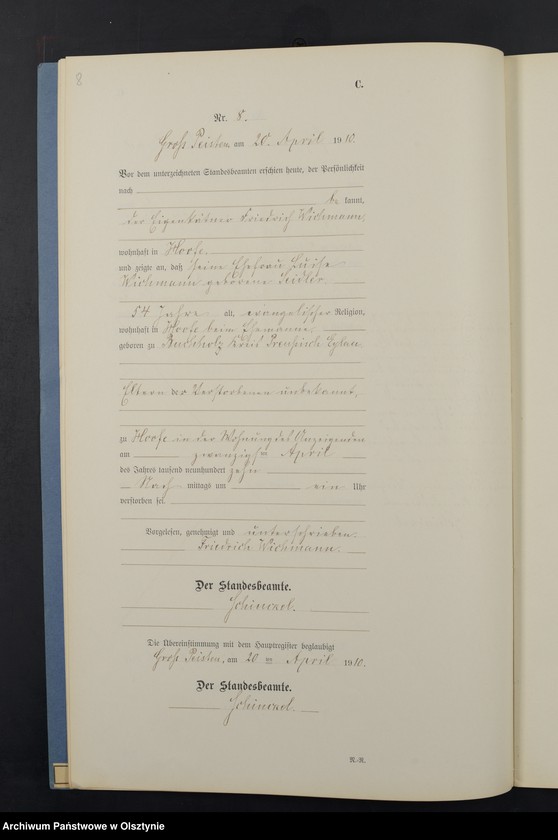 8
C.
Nr. 8.
Groß Peisten, am 20. April 1910.
Vor dem unterzeichneten Standesbeamten erschien heute, der Persönlichkeit
nach
be kannt,
der Eigenkätner Friedrich Wichmann,
wohnhaft in Hoofe
und zeigte an, daß seine Ehefrau Luise
Wichmann geborene Seidler
54 Jahre alt, evangelischer Religion,
wohnhaft in Hoofe beim Ehemanne
geboren zu Buchholz Kreis Preußisch Eylau
Eltern der Verstorbenen unbekannt,
zu Hoofe in der Wohnung des Anzeigenden
am zwanzigsten April
des Jahres tausend neunhundert zehn
Nach mittags um ein Uhr
verstorben sei.
Vorgelesen, genehmigt und unterschrieben.
Friedrich Wichmann.
Der Standesbeamte.
Schinckel.
Die Übereinstimmung mit dem Hauptregister beglaubigt
Groß Peisten, am 20 ten April 1910.
Der Standesbeamte.
Schinckel.
R.-R.
Archiwum Państwowe w Olsztynie